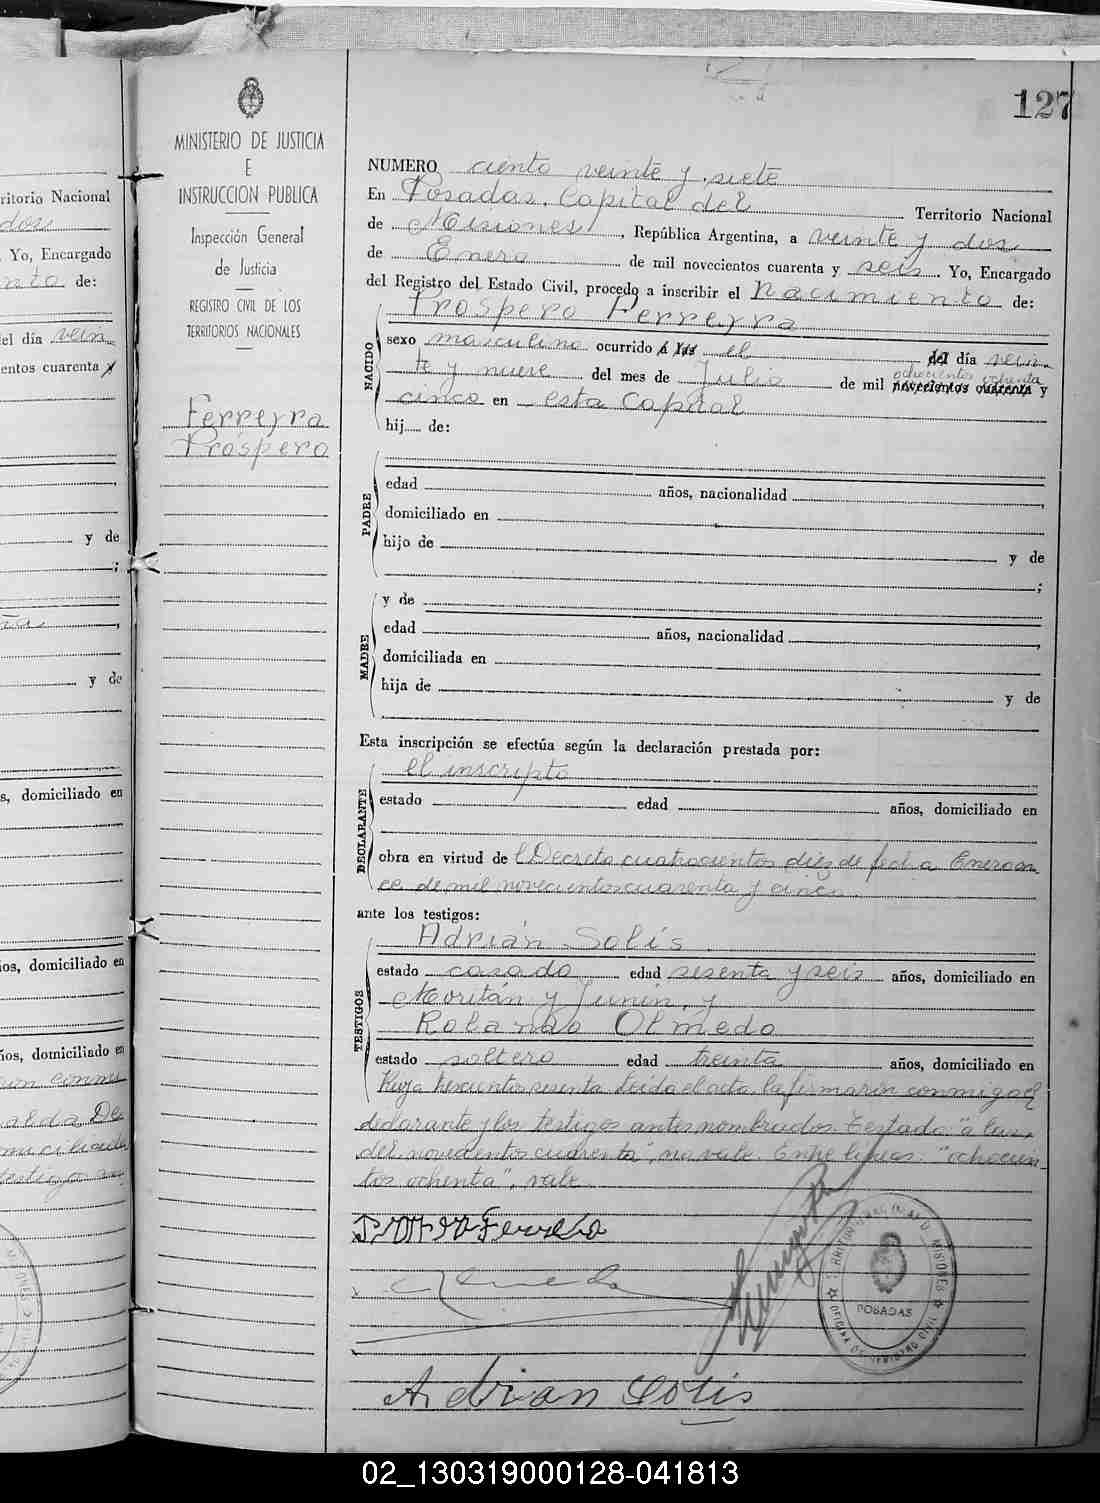 127
MINISTERIO DE JUSTICIA
E
INSTRUCCION PUBLICA
Inspección General
de Justicia
REGISTRO CIVIL DE LOS
TERRITORIOS NACIONALES
Ferreyra
Próspero
NUMERO ciento veinte y siete
En Posadas, Capital del Territorio Nacional
de Misiones, República Argentina, a veinte y dos
de Enero de mil novecientos cuarenta y seis. Yo, Encargado
del Registro del Estado Civil, procedo a inscribir el nacimiento de:
Prospero Ferreyra
NACIDO
sexo masculino ocurrido á las el del día vein
te y nueve del mes de Julio de mil novecientos cuarenta y
ochocientos ochenta
cinco en esta Capital
hij de:
PADRE
edad años, nacionalidad ,
domiciliado en
hijo de y de
;
MADRE
y de
edad años, nacionalidad ,
domiciliada en
hija de y de
Esta inscripción se efectúa según la declaración prestada por:
el inscripto
DECLARANTE
estado edad años, domiciliado en
obra en virtud de l Decreto cuatrocientos diez de fecha Enero on
ce de mil novecientos cuarenta y cinco
ante los testigos:
TESTIGOS
Adrián Solís
estado casado edad sesenta y seis años, domiciliado en
Moritán y Junín, y
Rolando Olmedo
estado soltero edad treinta años, domiciliado en
trescientos sesenta. Leida el acta, la firmaron conmigo el
declarante y los testigos antes nombrados. Testado: "a las,
del novecientos cuarenta", no vale. Entre lineas: "ochocien
tos ochenta", vale
Ferreyra
Adrian Solis
POSADAS
ritorio Nacional
dos
. Yo, Encargado
nto de:
el día vein
entos cuarenta y
y de
;
,
y de
s, domiciliado en
ios, domiciliado en
ños, domiciliado en
02_130319000128-041813